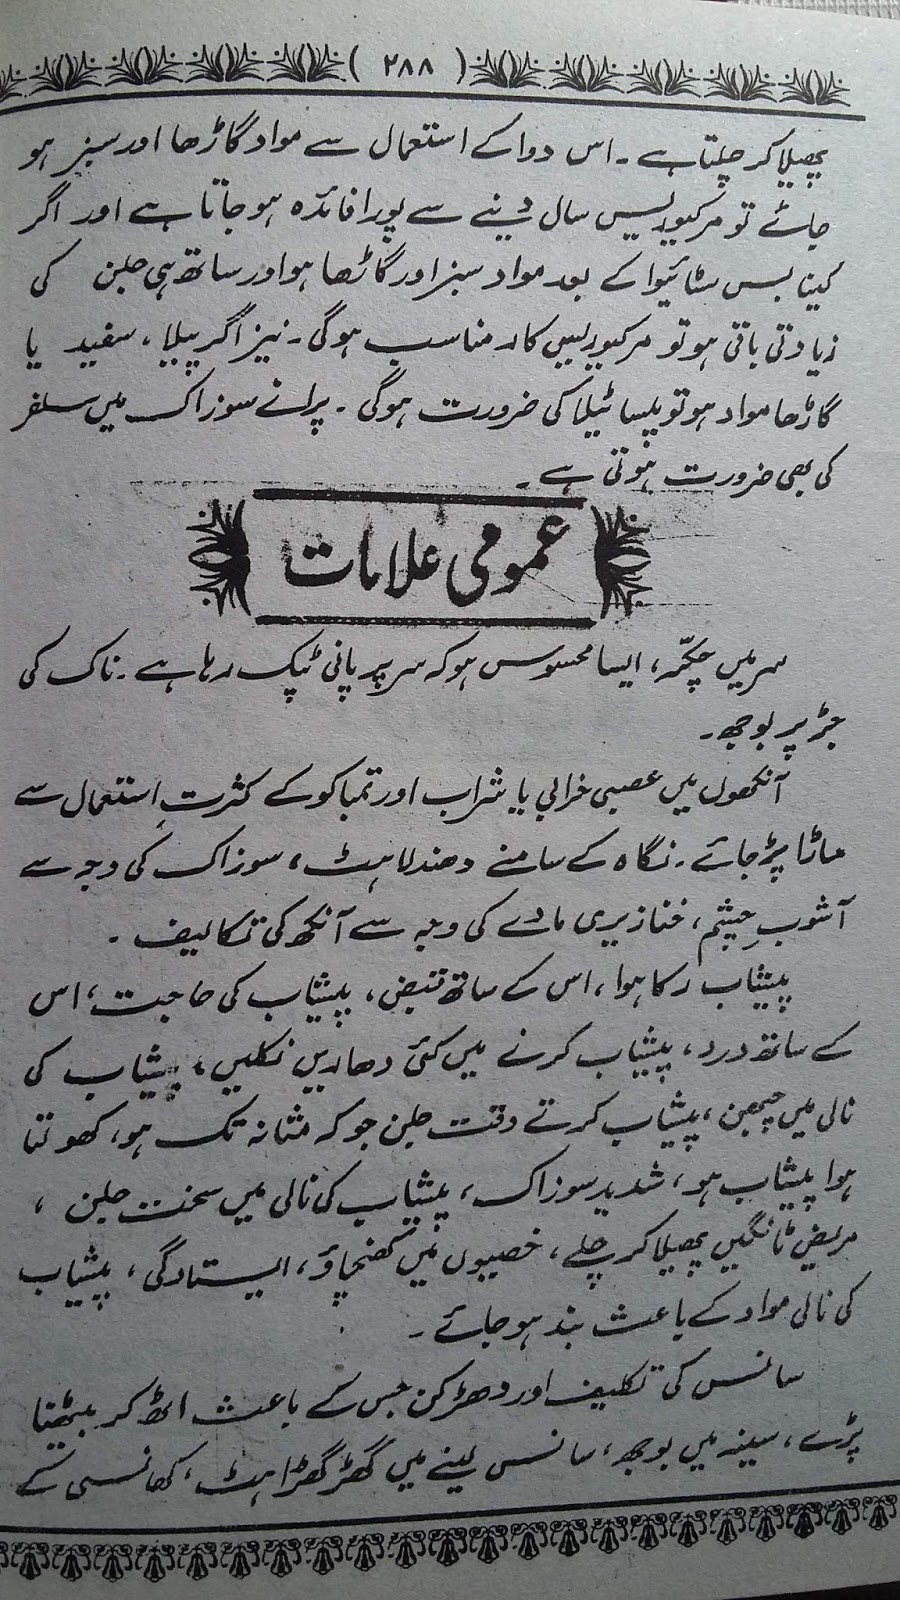 ( ۲۸۸ )
پھیلا کر چلتا ہے ۔ اس دوا کے استعمال سے مواد گاڑھا اور سبز ہو
جائے تو مرکیوریس سال دینے سے پورا فائدہ ہو جاتا ہے اور اگر
کینا بس سٹائیوا کے بعد مواد سبز اور گاڑھا ہو اور ساتھ ہی جلن کی
زیادتی باقی ہو تو مرکیوریس کار مناسب ہوگی ۔ نیز اگر پیلا ، سفید یا
گاڑھا مواد ہو تو پلساٹیلا کی ضرورت ہوگی ۔ پرانے سوزاک میں سلفر
کی بھی ضرورت ہوتی ہے ۔
عمومی علامات
سر میں چکر ، ایسا محسوس ہو کہ سر پر پانی ٹپک رہا ہے ۔ ناک کی
جڑ پر بوجھ ۔
آنکھوں میں عصبی خرابی یا شراب اور تمباکو کے کثرتِ استعمال سے
ماڑا پڑ جائے ۔ نگاہ کے سامنے دھندلاہٹ ، سوزاک کی وجہ سے
آشوبِ چشم ، خنازیری مادے کی وجہ سے آنکھ کی تکالیف ۔
پیشاب رکا ہوا ، اس کے ساتھ قبض ، پیشاب کی حاجت ، اس
کے ساتھ درد ، پیشاب کرنے میں کئی دھاریں نکلیں ، پیشاب کی
نالی میں چبھن ، پیشاب کرتے وقت جلن جو کہ مثانہ تک ہو ، کھولتا
ہوا پیشاب ہو ، شدید سوزاک ، پیشاب کی نالی میں سخت جلن ،
مریض ٹانگیں پھیلا کر چلے ، خصیوں میں کھنچاؤ ، ایستادگی ، پیشاب
کی نالی مواد کے باعث بند ہو جائے ۔
سانس کی تکلیف اور دھڑکن جس کے باعث اٹھ کر بیٹھنا
پڑے ، سینہ میں بوجھ ، سانس لینے میں گھڑگھڑاہٹ ، کھانسی کے